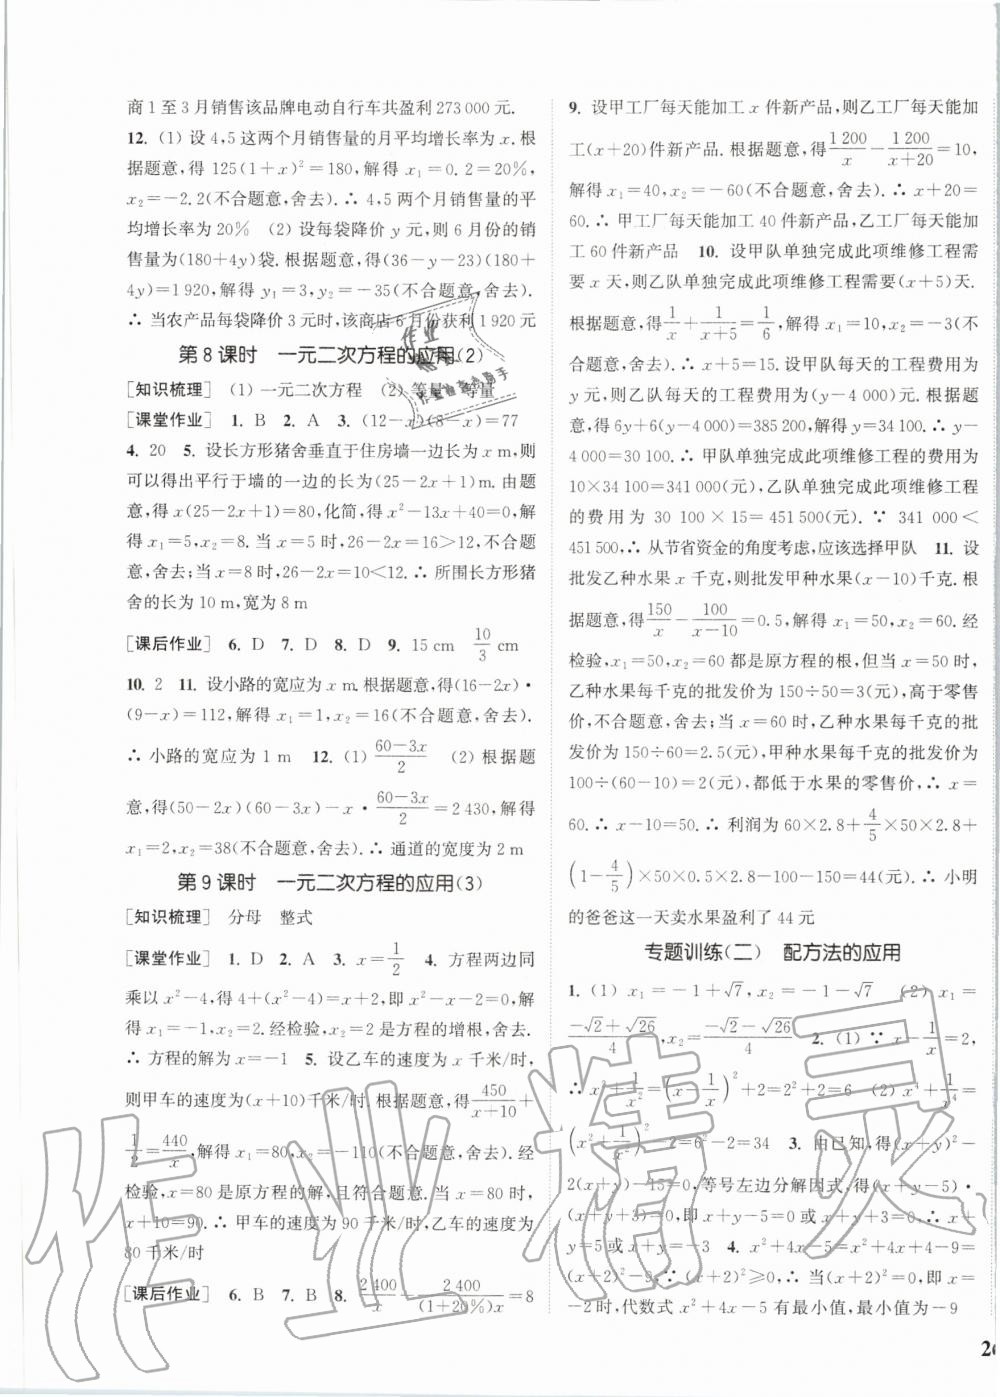 商1至3月销售该品牌电动自行车共盈利273 000元.
12. (1) 设4,5这两个月销售量的月平均增长率为x.根
据题意,得125(1+x)²=180,解得x₁=0.2=20%,
x₂=-2.2(不合题意,舍去).∴ 4,5两个月销售量的平
均增长率为20% (2) 设每袋降价y元,则6月份的销
售量为(180+4y)袋.根据题意,得(36-y-23)(180+
4y)=1 920,解得y₁=3,y₂=-35(不合题意,舍去).
∴ 当农产品每袋降价3元时,该商店6月份获利1 920元
第8课时 一元二次方程的应用(2)
[知识梳理] (1) 一元二次方程 (2) 等量 等量
[课堂作业] 1. B 2. A 3. (12-x)(8-x)=77
4. 20 5. 设长方形猪舍垂直于住房墙一边长为x m,则
可以得出平行于墙的一边的长为(25-2x+1)m.由题
意,得x(25-2x+1)=80,化简,得x²-13x+40=0,解
得x₁=5,x₂=8.当x=5时,26-2x=16>12,不合题
意,舍去;当x=8时,26-2x=10<12.∴ 所围长方形猪
舍的长为10 m,宽为8 m
[课后作业] 6. D 7. D 8. D 9. 15 cm 10/3 cm
10. 2 11. 设小路的宽应为x m.根据题意,得(16-2x)·
(9-x)=112,解得x₁=1,x₂=16(不合题意,舍去).
∴ 小路的宽应为1 m 12. (1) (60-3x)/2 (2) 根据题
意,得(50-2x)(60-3x)-x·(60-3x)/2=2 430,解得
x₁=2,x₂=38(不合题意,舍去).∴ 通道的宽度为2 m
第9课时 一元二次方程的应用(3)
[知识梳理] 分母 整式
[课堂作业] 1. D 2. A 3. x=1/2 4. 方程两边同
乘以x²-4,得4+(x²-4)=x+2,即x²-x-2=0,解
得x₁=-1,x₂=2.经检验,x₂=2是方程的增根,舍去.
∴ 方程的解为x=-1 5. 设乙车的速度为x千米/时,
则甲车的速度为(x+10)千米/时.根据题意,得450/(x+10)+
1/2=440/x,解得x₁=80,x₂=-110(不合题意,舍去).经
检验,x=80是原方程的解,且符合题意.当x=80时,
x+10=90.∴ 甲车的速度为90千米/时,乙车的速度为
80千米/时
[课后作业] 6. B 7. B 8. 2 400/x-2 400/((1+20%)x)=8
9. 设甲工厂每天能加工x件新产品,则乙工厂每天能加
工(x+20)件新产品.根据题意,得1 200/x-1 200/(x+20)=10,
解得x₁=40,x₂=-60(不合题意,舍去).∴ x+20=
60.∴ 甲工厂每天能加工40件新产品,乙工厂每天能加
工60件新产品 10. 设甲队单独完成此项维修工程需
要x天,则乙队单独完成此项维修工程需要(x+5)天.
根据题意,得1/x+1/(x+5)=1/6,解得x₁=10,x₂=-3(不
合题意,舍去).∴ x+5=15.设甲队每天的工程费用为
y元,则乙队每天的工程费用为(y-4 000)元.根据题
意,得6y+6(y-4 000)=385 200,解得y=34 100.∴ y-
4 000=30 100.∴ 甲队单独完成此项维修工程的费用为
10×34 100=341 000(元),乙队单独完成此项维修工程
的费用为30 100×15=451 500(元).∵ 341 000<
451 500,∴ 从节省资金的角度考虑,应该选择甲队 11. 设
批发乙种水果x千克,则批发甲种水果(x-10)千克.根
据题意,得150/x-100/(x-10)=0.5,解得x₁=50,x₂=60.经
检验,x₁=50,x₂=60都是原方程的根,但当x=50时,
乙种水果每千克的批发价为150÷50=3(元),高于零售
价,不合题意,舍去;当x=60时,乙种水果每千克的批
发价为150÷60=2.5(元),甲种水果每千克的批发价为
100÷(60-10)=2(元),都低于水果的零售价,∴ x=
60.∴ x-10=50.∴ 利润为60×2.8+4/5×50×2.8+
(1-4/5)×50×0.5×2.8-100-150=44(元).∴ 小明
的爸爸这一天卖水果盈利了44元
专题训练(二) 配方法的应用
1. (1) x₁=-1+√7,x₂=-1-√7 (2) x₁=
(-√2+√26)/4,x₂=(-√2-√26)/4 2. (1) ∵ x-1/x=2,
∴ x²+1/x²=(x-1/x)²+2=2²+2=6 (2) x⁴+1/x⁴=
(x²+1/x²)²-2=6²-2=34 3. 由已知,得(x+y)²-
2(x+y)-15=0,等号左边分解因式,得(x+y-5)·
(x+y+3)=0,即x+y-5=0或x+y+3=0,∴ x+
y=5或x+y=-3 4. x²+4x-5=x²+4x+4-9=
(x+2)²-9.∵ (x+2)²≥0,∴ 当(x+2)²=0,即x=
-2时,代数式x²+4x-5有最小值,最小值为-9
作业精灵